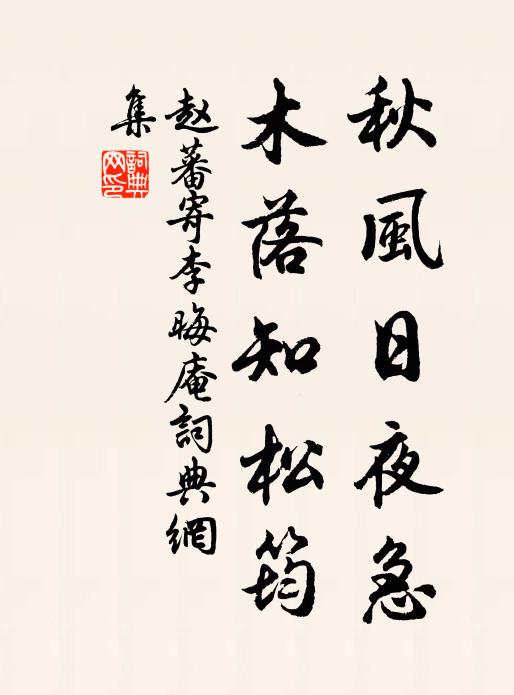 秋風日夜急
木落知松筠
赵蕃寄李晦庵詞典網
集
詞典網印